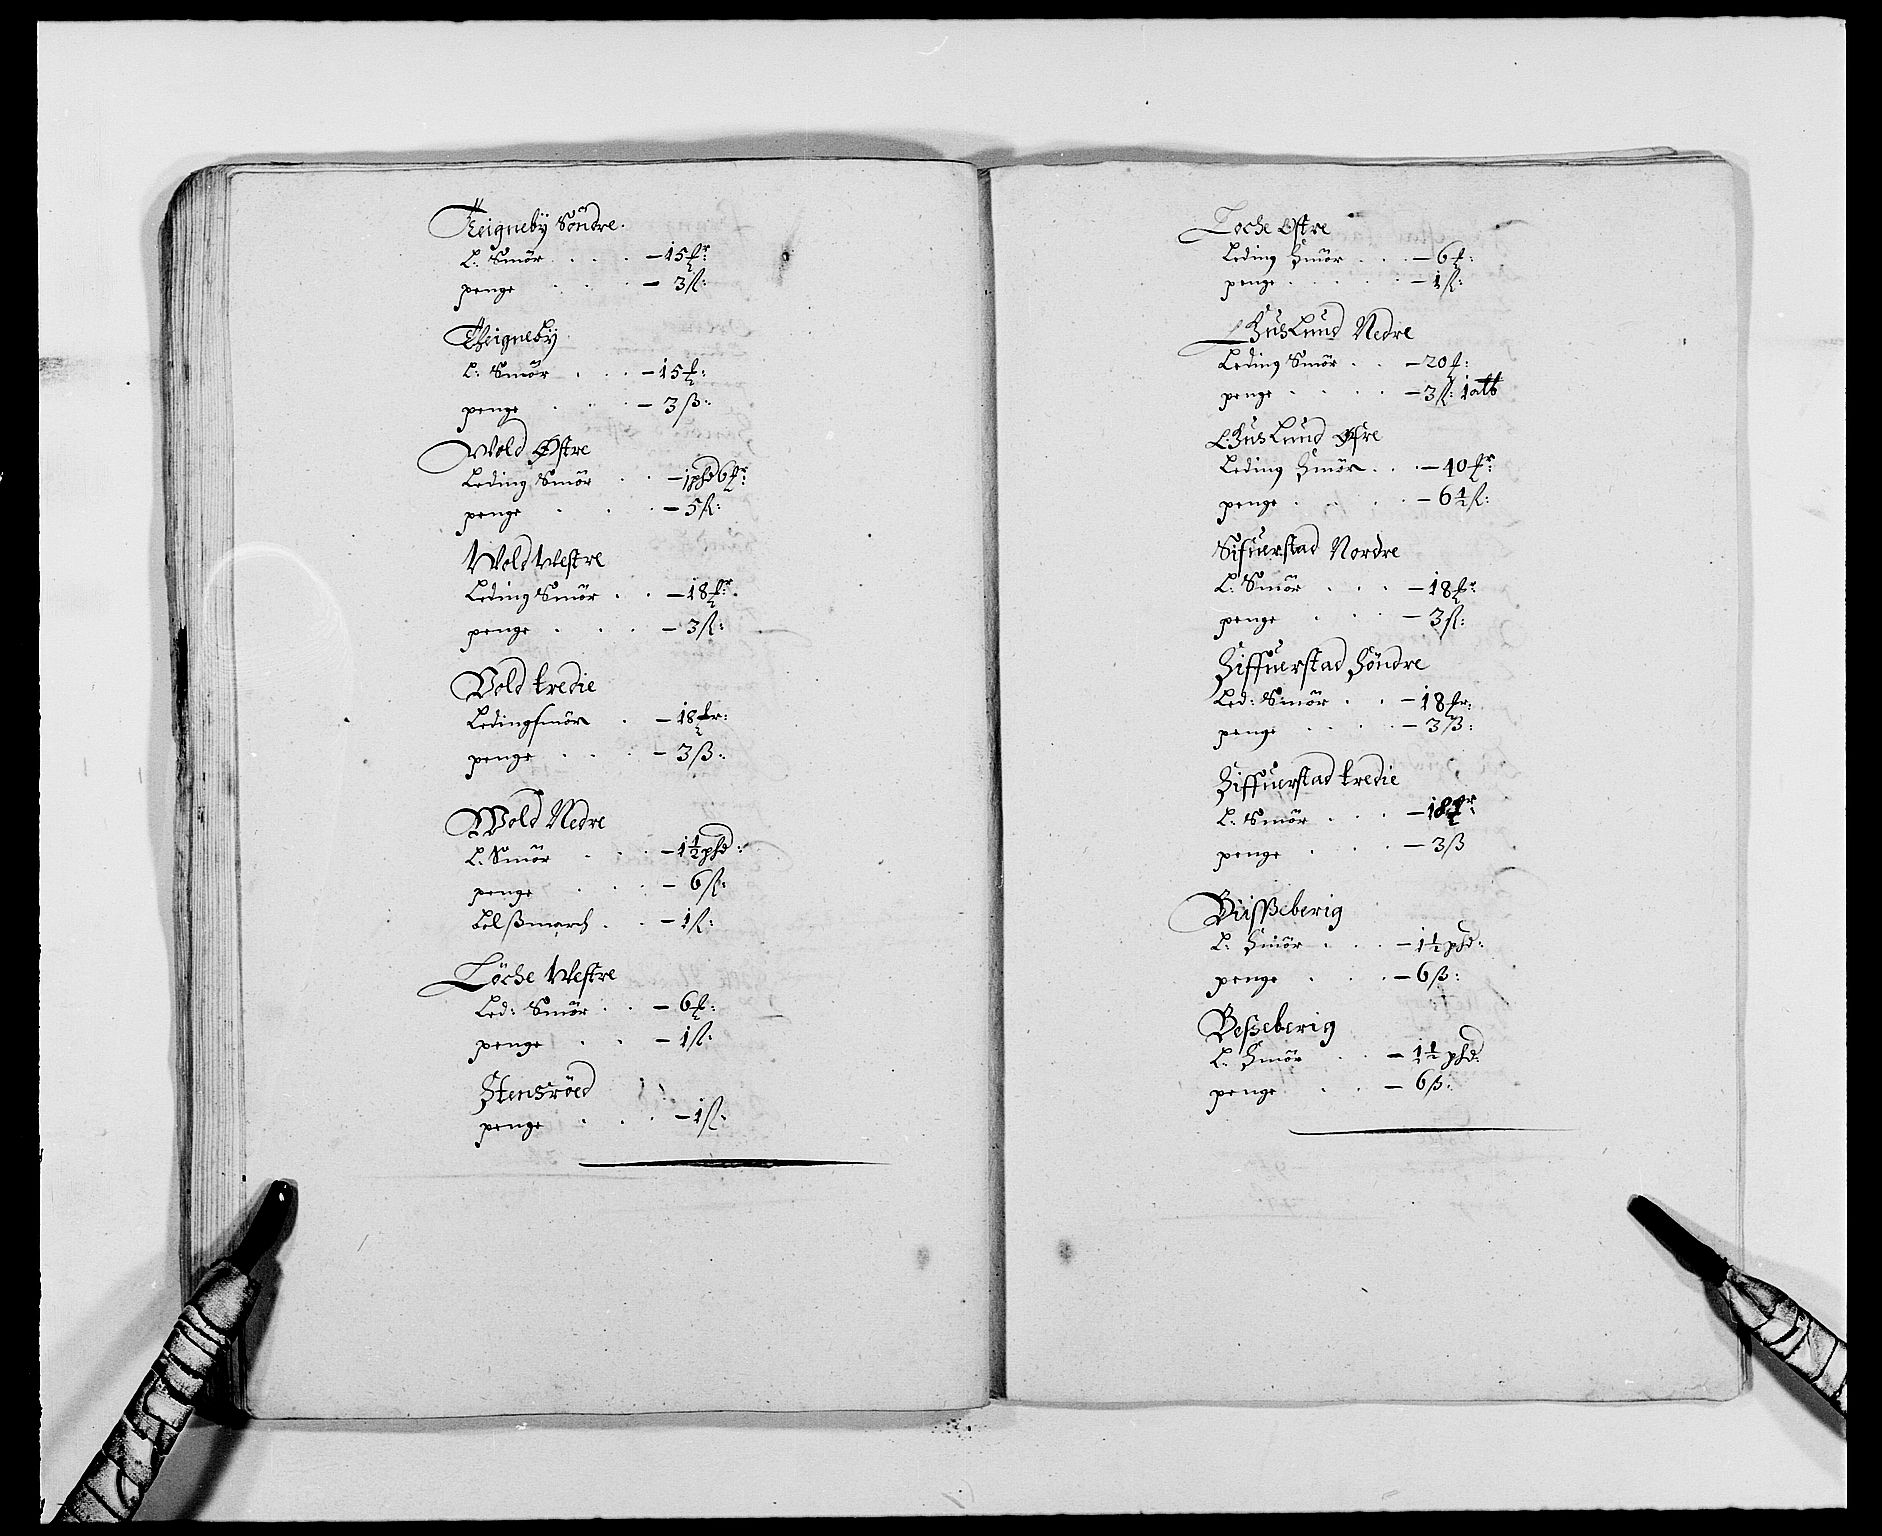 Teigneby Söndre.
L: Smör . . . . — 15 ₰r:
penge . . . — 3 ß:
Theigneby
L: Smör . . . — 15 ₰:
penge . . . — 3 ß:
Wold Østre
Leding Smör . . — 1 phd 6 ₰r:
penge . . . — 5 ß:
Wold Westre
Leding Smör . . — 18 ₰r.
penge . . . — 3 ß:
Wold tredie
Ledingsmör . — 18 ₰r:
penge . . . — 3 ß:
Wold Nedre
L: Smör . . . — 1½ phd:
penge . . . — 6 ß:
. . — 1 ß:
Löche Westre
Led: Smör . . — 6 ₰:
penge . . — 1 ß:
Stensröed
penge . . . — 1 ß:
Loche Østre
Leding Smör . . . — 6 ₰:
penge . . . . . — 1 ß:
Huslund Nedre
Leding Smör . . — 20 ₰:
penge . . . . — 3 ß: 1 alb
Huslund Øfre
Leding Smör . . . — 40 ₰r:
penge . . . . — 6½ ß:
Sifuerstad Nordre
L: Smör . . . — 18 ₰r:
penge . . . — 3 ß:
Siffuerstad Söndre
Led: Smör . . — 18 ₰r:
penge . . . . — 3 ß:
Siffuerstad tredie
L: Smör . . . — 18 ₰r:
penge . . . — 3 ß
L: Smör . . . — 1½ phd:
penge . . . — 6 ß:
Beßeberig
L: Smör . . — 1½ phd:
penge . . — 6 ß: